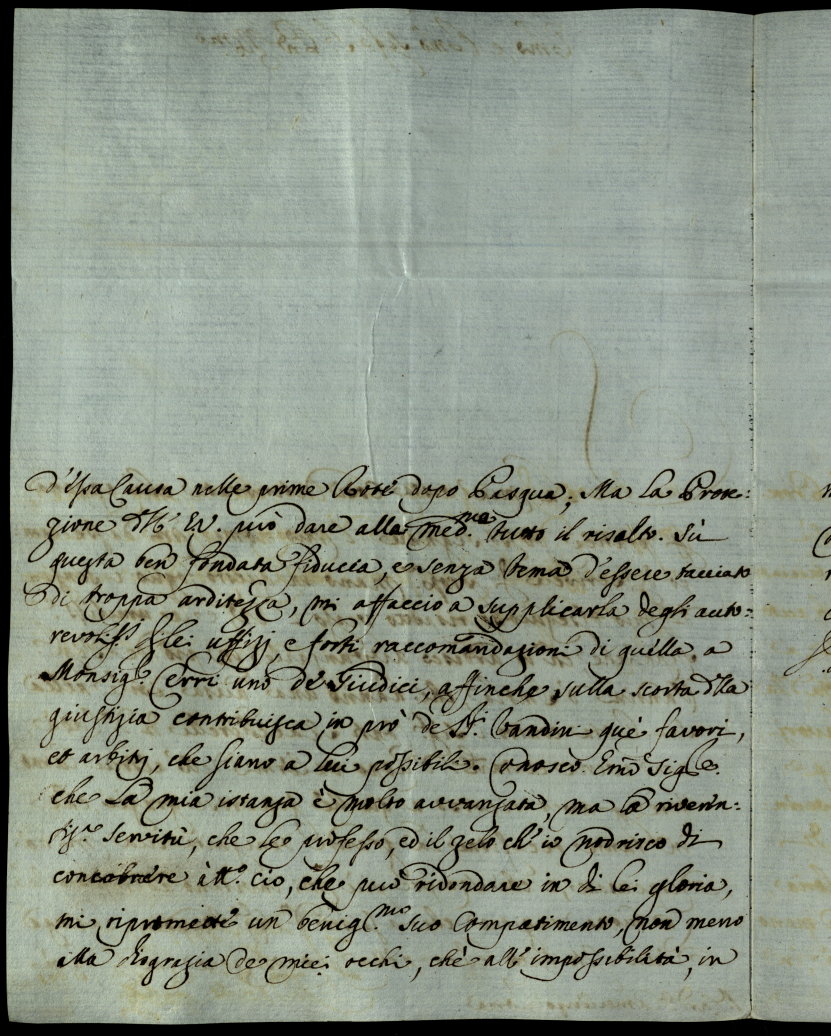 d'essa Causa nelle prime Rote dopo Pasqua; Ma La Prote:
zione dll' Ev. può dare alla med.ma tutto il risalto. Sù
questa ben fondata fiducia, e senza tema d'essere tacciato
di troppa arditezza, mi affaccio a supplicarla degli auto:
revoliss.i di lei uffizj, e forti raccomandazioni di quella a
Monsig.e Erri uno de Giudici, affinche sulla scorta dlla
giustizia contribuisca in prò de SS.ri Bandini que' favori,
et arbitrj, che siano a lui possibili. Conosco Emo Sig.e
che La mia istanza è molto avvanzata, ma la riverin:
servitù, che Le professo, ed il zelo ch' io nodrisco di
concorrere à tt.o ciò, che può ridondare in di lei gloria,
mi ripromette un benig.mo suo Compatimento, non meno
alla disgrazia de miei occhi, che all' impossibilità, in